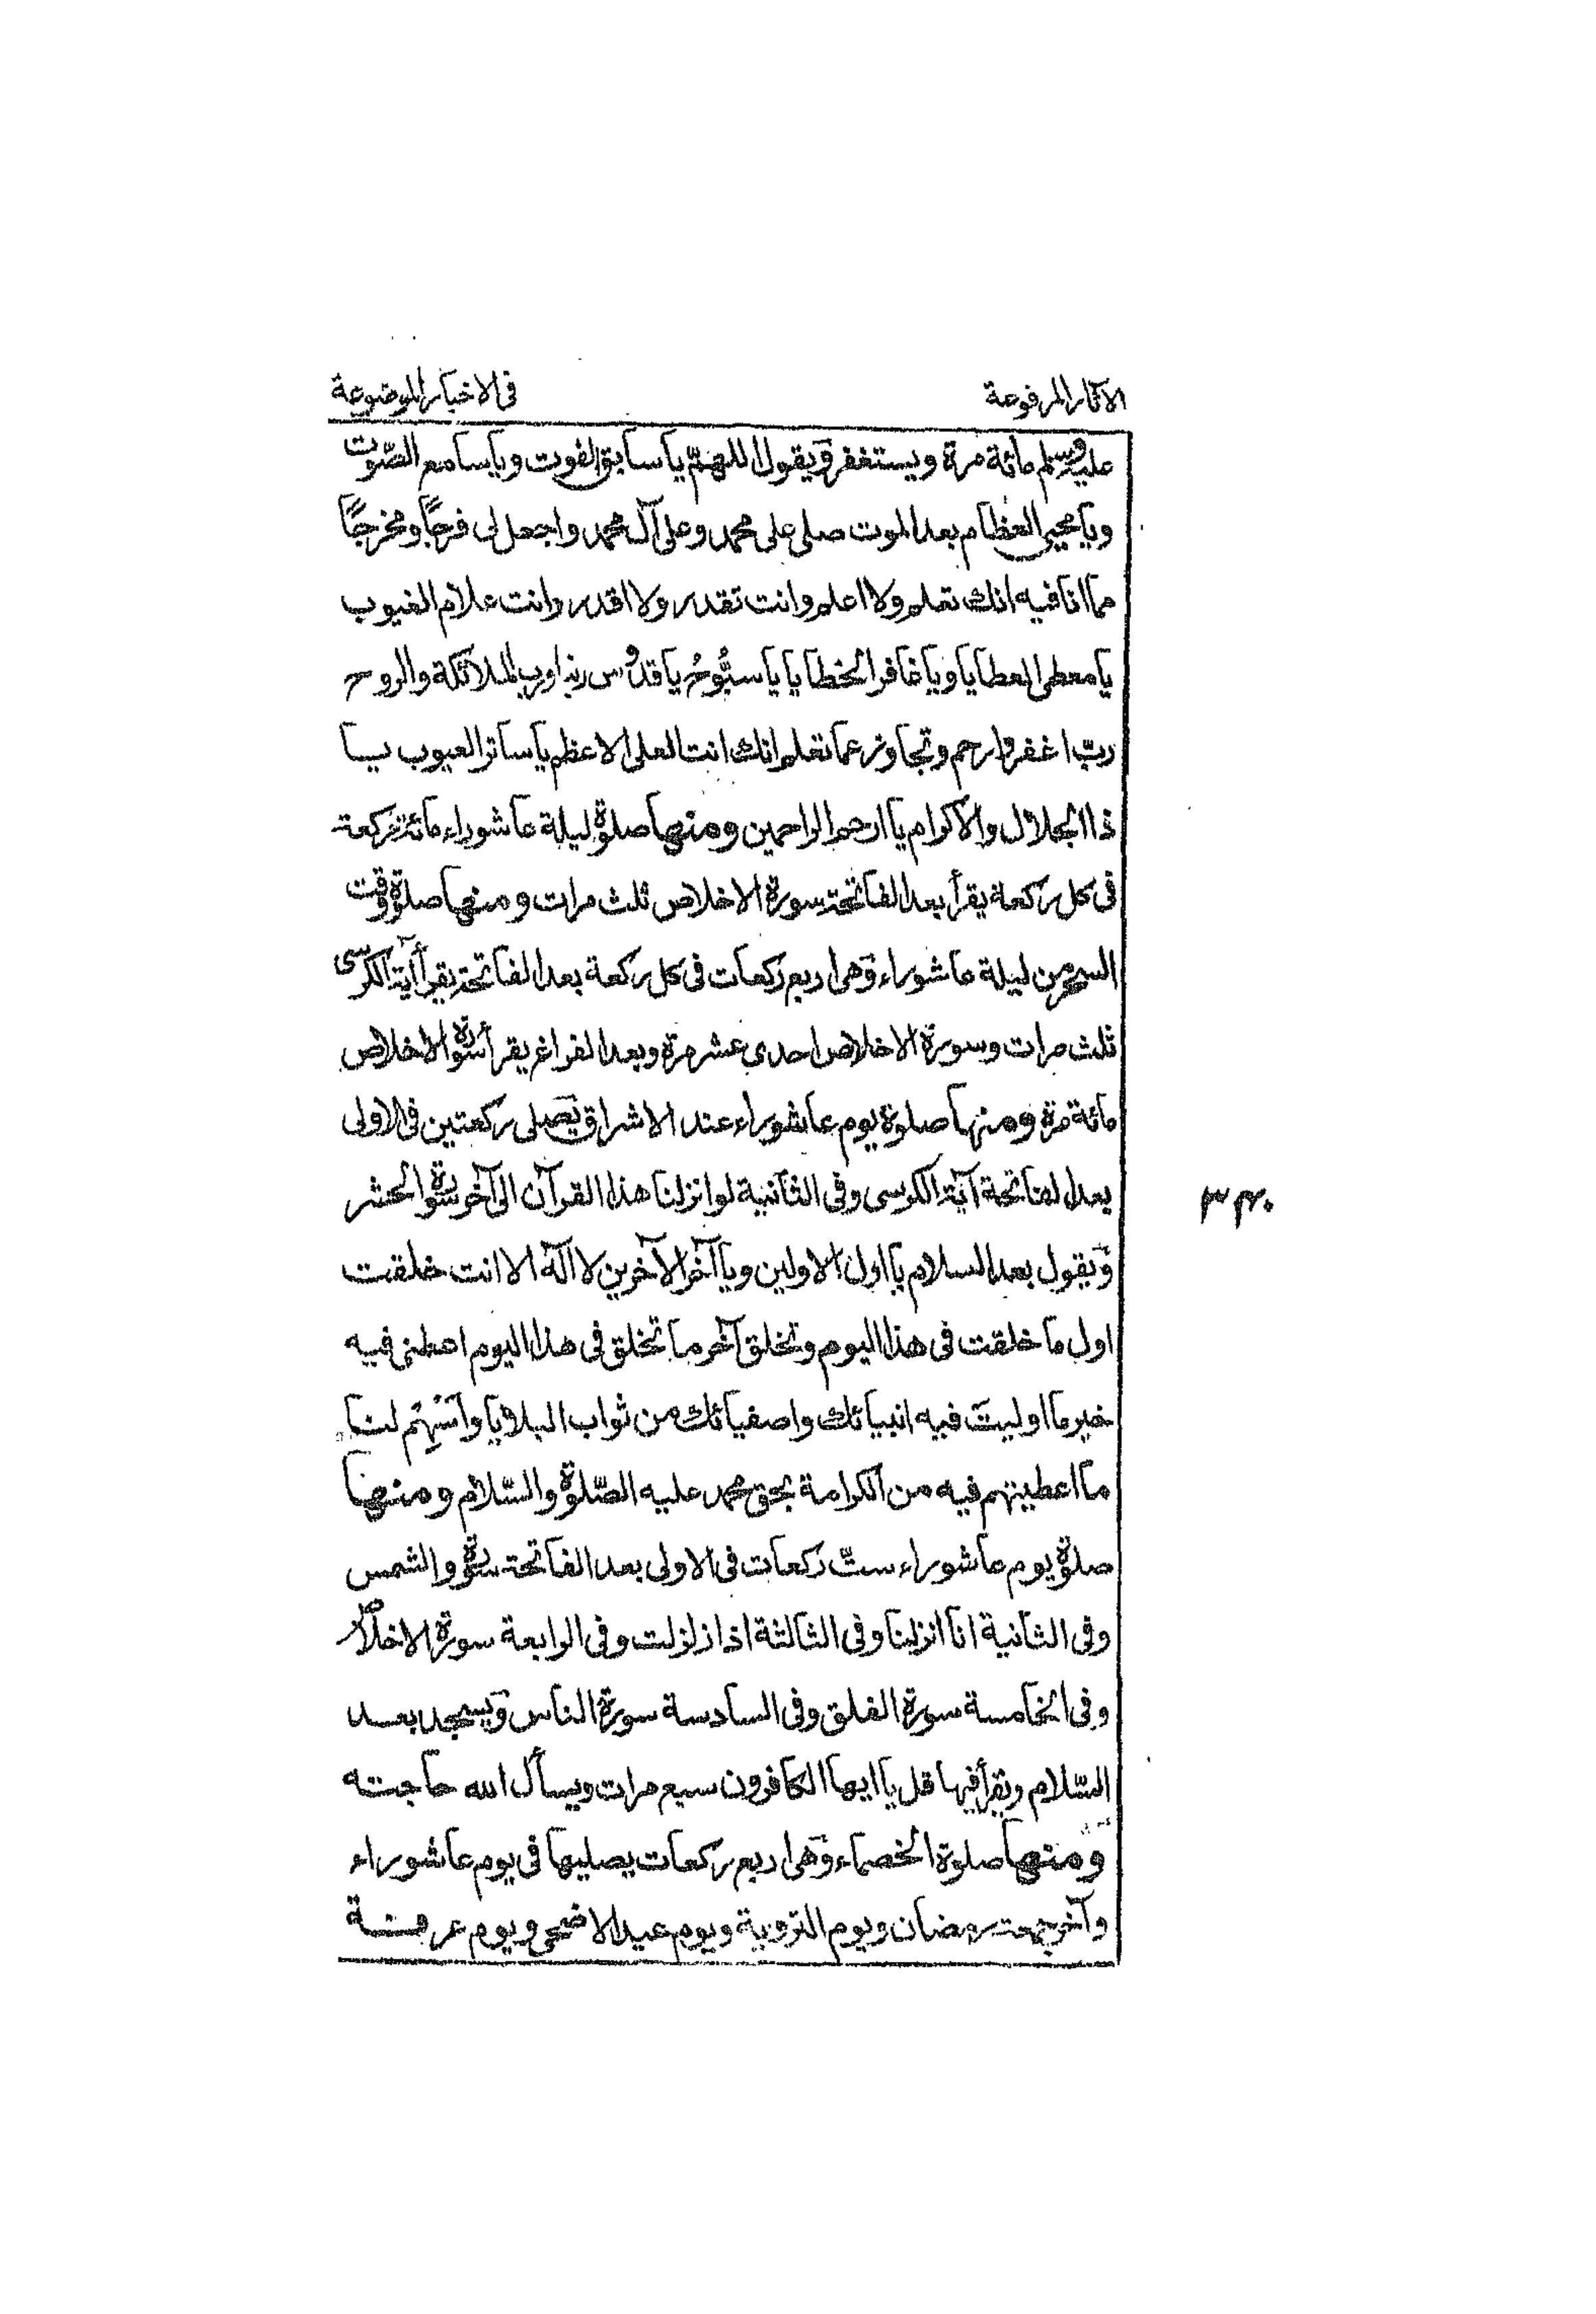 الآثار المرفوعة
فى الاخبار الموضوعة
عليه وسلم مائة مرة ويستغفر ويقول اللهم يا سابق الفوت ويا سامع الصّوت
ويا محيى العظام بعد الموت صلى على محمد وعلى آل محمد واجعل لى فرجًا ومخرجًا
مما انا فيه انك تعلم ولا اعلم وانت تقدر ولا اقدر وانت علام الغيوب
يا معطى العطايا ويا غافر الخطايا يا سبُّوحُ يا قدُّوس ربنا ورب الملائكة والروح
ربّ اغفر وارحم وتجاوز عما تعلم انك انت العلى الاعظم يا ساتر العيوب يا
ذا الجلال والاكرام يا ارحم الراحمين ومنها صلوة ليلة عاشوراء مائة ركعة
فى كل ركعة يقرأ بعد الفاتحة سورة الاخلاص ثلث مرات ومنها صلوة وقت
السحر من ليلة عاشوراء وهى اربع ركعات فى كل ركعة بعد الفاتحة يقرأ آية الكرسى
ثلث مرات وسورة الاخلاص احدى عشر مرة وبعد الفراغ يقرأ سورة الاخلاص
مائة مرة ومنها صلوة يوم عاشوراء عند الاشراق يصلى ركعتين فى الاولى
بعد الفاتحة آية الكرسى وفى الثانية لو انزلنا هذا القرآن الى آخر سورة الحشر
ويقول بعد السلام يا اول الاولين ويا آخر الآخرين لا اله الا انت خلقت
اول ما خلقت فى هذا اليوم وتخلق آخر ما تخلق فى هذا اليوم اعطنى فيه
خير ما اوليت فيه انبيائك واصفيائك من ثواب البلايا واسْهِم لنا
ما اعطيتهم فيه من الكرامة بحق محمد عليه الصّلوة والسّلام ومنها
صلوة يوم عاشوراء ستّ ركعات فى الاولى بعد الفاتحة سورة والشمس
وفى الثانية انا انزلنا وفى الثالثة اذا زلزلت وفى الرابعة سورة الاخلاص
وفى الخامسة سورة الفلق وفى السادسة سورة الناس ويسجد بعد
السّلام ويقرأ فيها قل يا ايها الكافرون سبع مرات ويسأل الله حاجته
ومنها صلوة الخصماء وهى اربع ركعات يصليها فى يوم عاشوراء
وآخر جمعة رمضان ويوم التروية ويوم عيد الاضحى ويوم عرفة